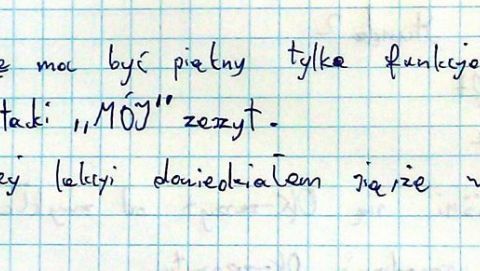 ma być piątny tylko funkcje
tacki ,,MÓJ" zeszyt.
lekcyi dowiedziałem się, że w